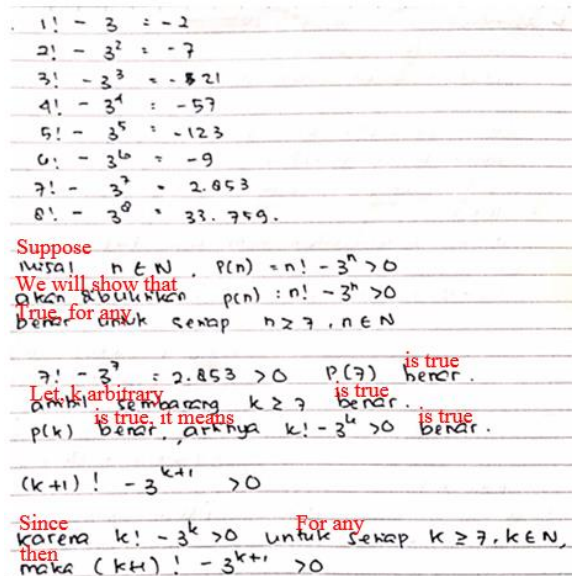 1! - 3 = -2
2! - 3² = -7
3! - 3³ = -21
4! - 3⁴ = -57
5! - 3⁵ = -123
6! - 3⁶ = -9
7! - 3⁷ = 2.853
8! - 3⁸ = 33.759.
Suppose
misal n ∈ N, P(n) = n! - 3ⁿ > 0
We will show that
akan dibuktikan p(n) : n! - 3ⁿ > 0
True, for any
benar untuk setiap n ≥ 7, n ∈ N
is true
7! - 3⁷ = 2.853 > 0 P(7) benar.
Let, k arbitrary is true
ambil sembarang k ≥ 7 benar.
is true, it means is true
P(k) benar, artinya k! - 3ᵏ > 0 benar.
(k+1)! - 3ᵏ⁺¹ > 0
Since For any
karena k! - 3ᵏ > 0 untuk setiap k ≥ 7, k ∈ N,
then
maka (k+1)! - 3ᵏ⁺¹ > 0